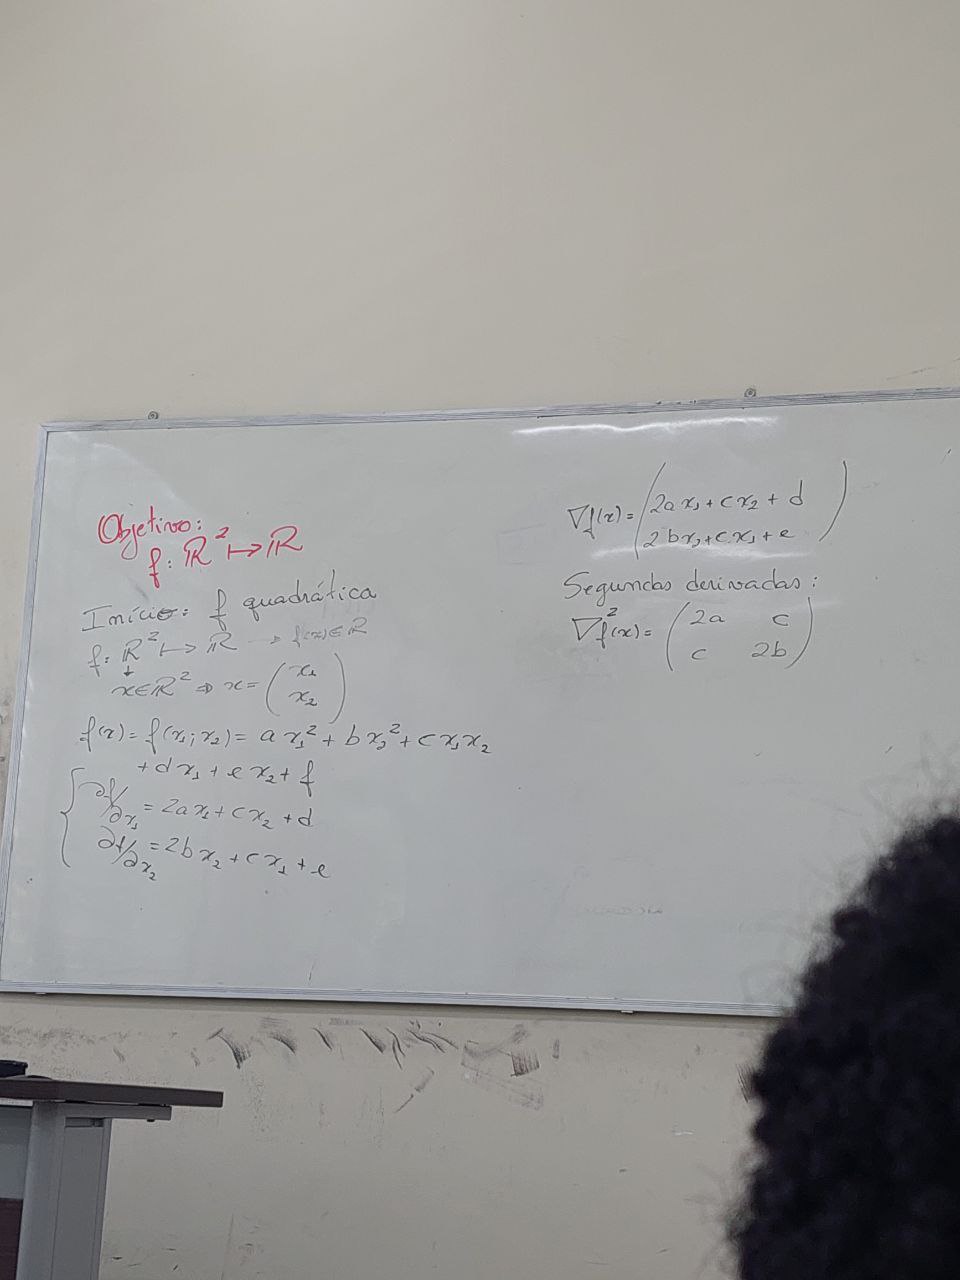 Objetivo:
f: ℝ² ↦ ℝ
Início: f quadrática
f: ℝ² ↦ ℝ → f(x) ∈ ℝ
↓
x ∈ ℝ² ⇒ x = (x₁
x₂)
f(x) = f(x₁; x₂) = a x₁² + b x₂² + c x₁x₂
+ d x₁ + e x₂ + f
{ ∂f/∂x₁ = 2a x₁ + c x₂ + d
∂f/∂x₂ = 2b x₂ + c x₁ + e
∇f(x) = (2a x₁ + c x₂ + d
2b x₂ + c x₁ + e)
Segundas derivadas:
∇²f(x) = (2a c
c 2b)